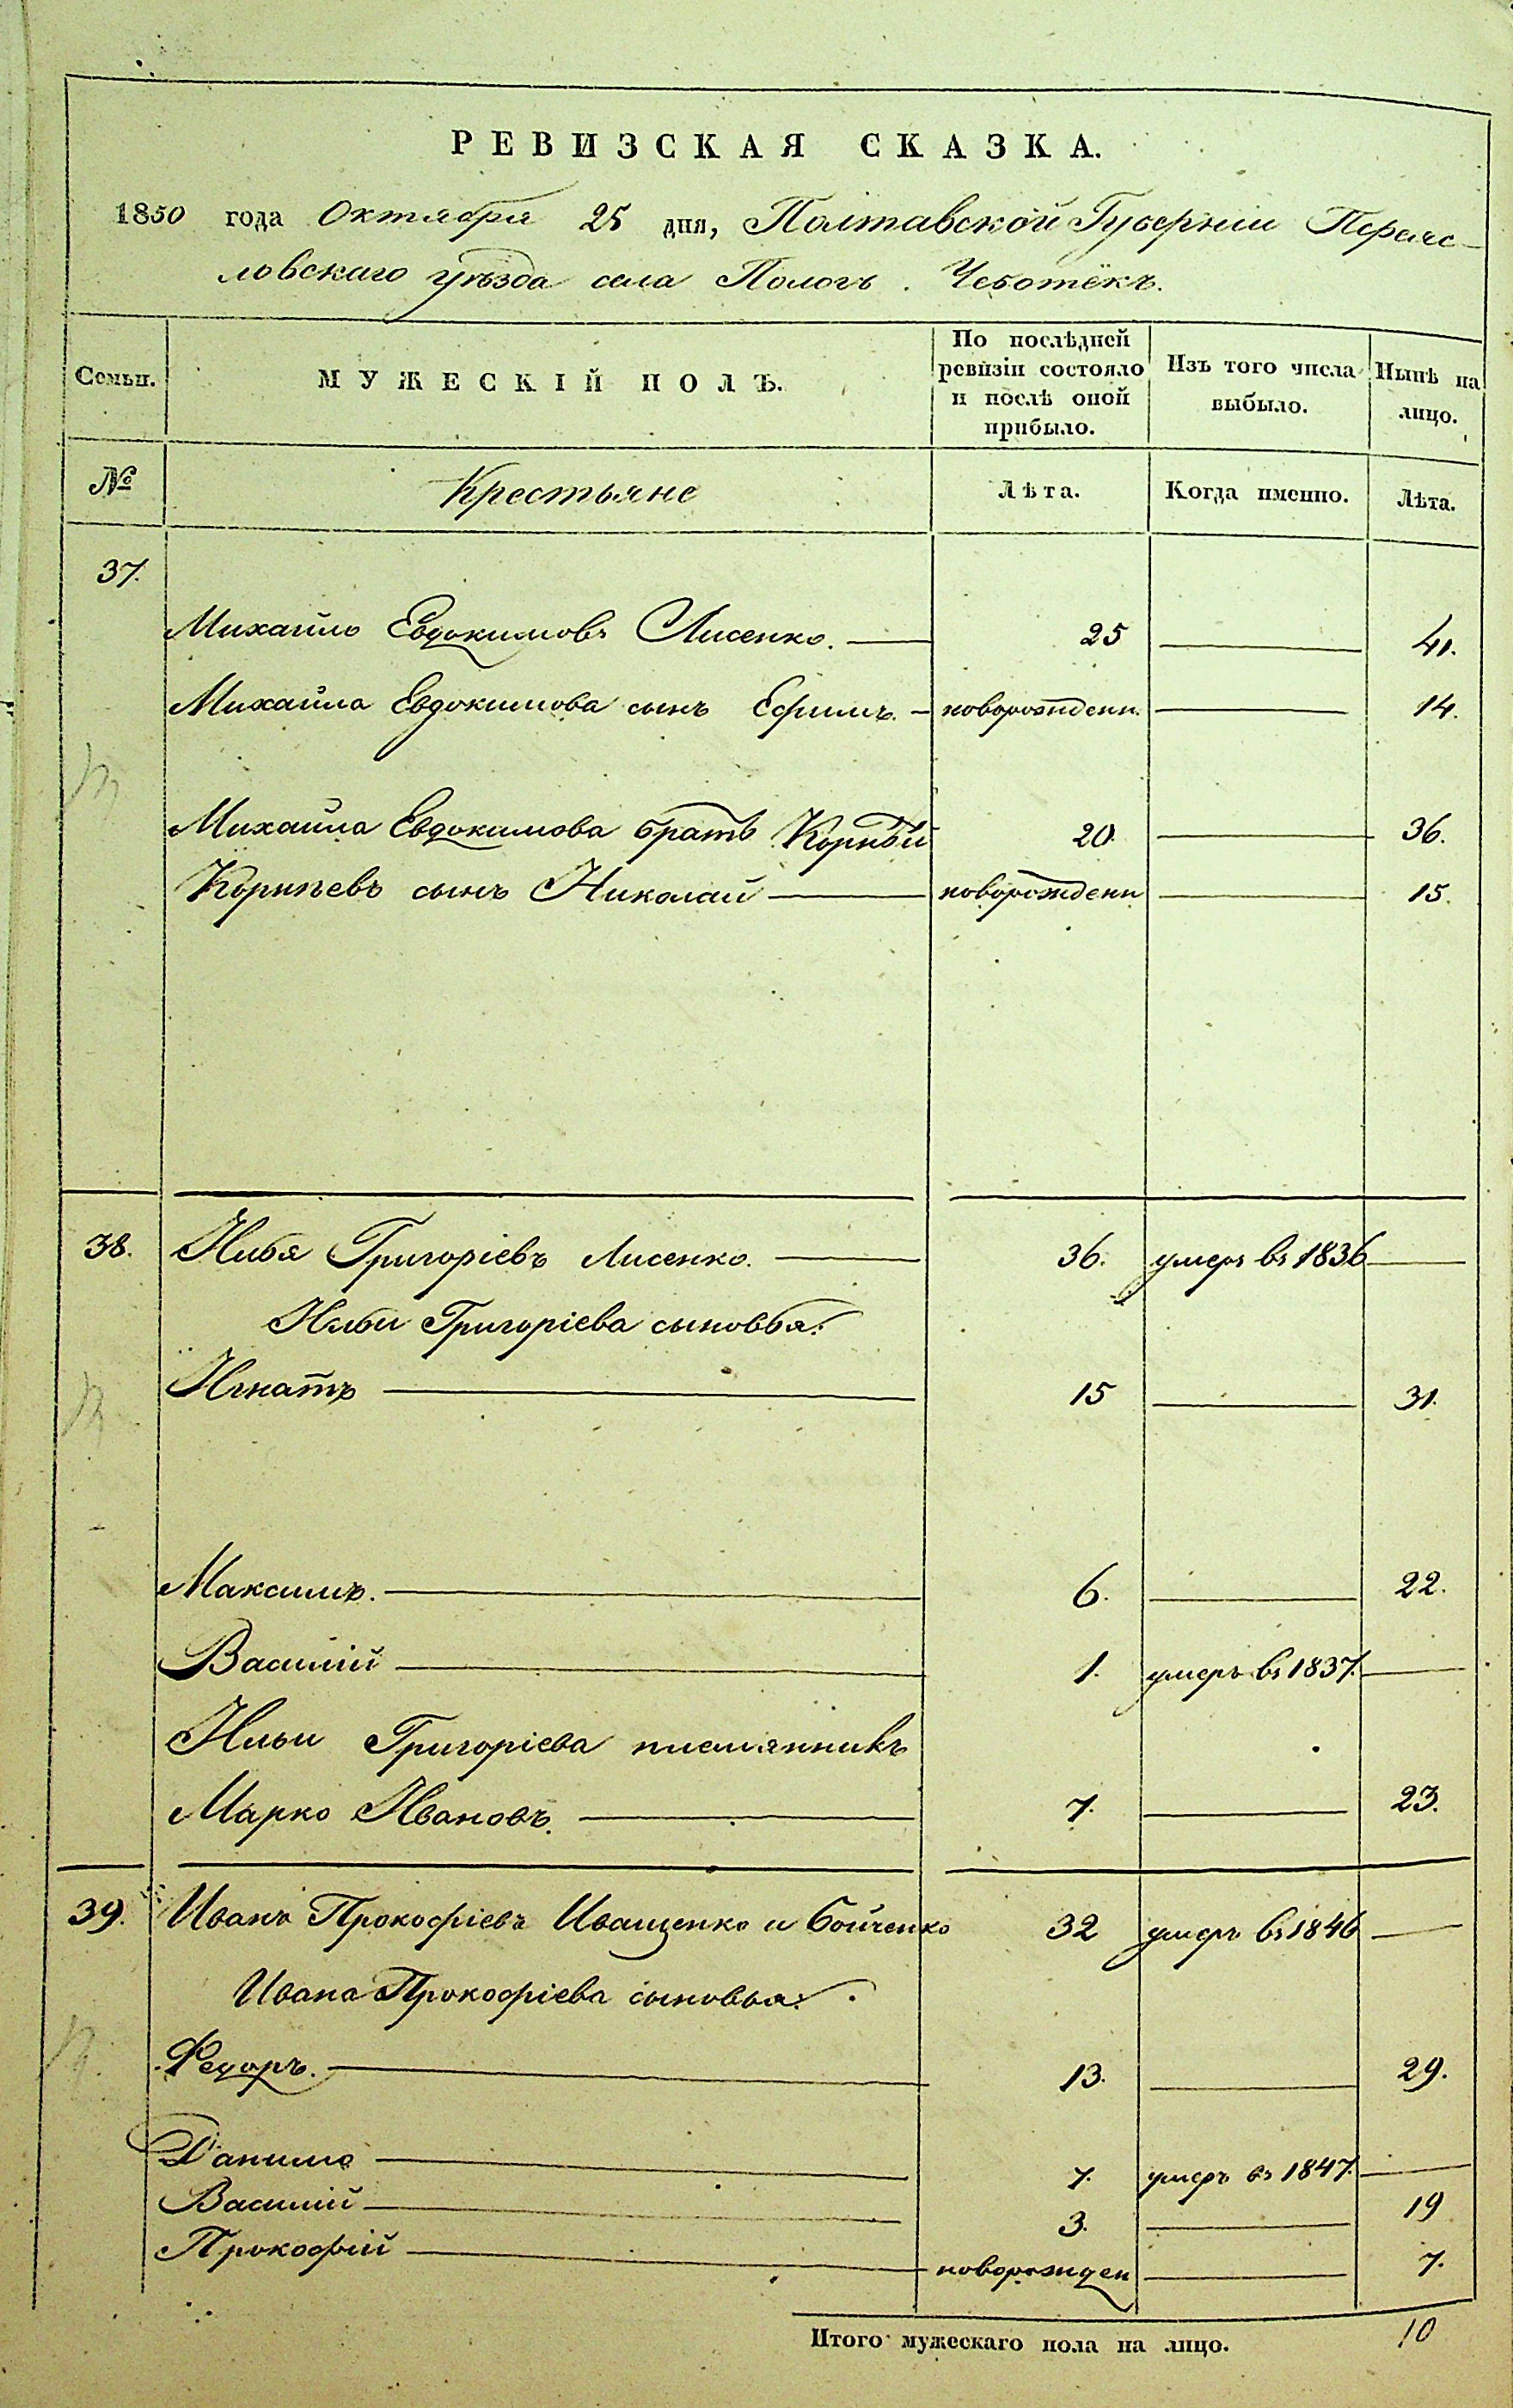 РЕВИЗСКАЯ СКАЗКА.
1850 года Октября 25 дня, Полтавской Губерніи Переяс-
ловскаго уѣзда села Пологъ. Чеботёкъ.
Семьи. МУЖЕСКІЙ ПОЛЪ. По послѣдней ревизіи состояло и послѣ оной прибыло. Изъ того числа выбыло. Нынѣ на лицо.
№ Крестьяне Лѣта. Когда именно. Лѣта.
37.
Михайло Евдокимовъ Лисенко. 25 41.
Михайла Евдокимова сынъ Ефимъ. новорожденн. 14.
Михайла Евдокимова братъ Корнѣй 20. 36.
Корнѣевъ сынъ Николай новорожденн 15.
38. Илья Григоріевъ Лисенко. 36. умеръ въ 1836
Ильи Григоріева сыновья:
Игнатъ 15 31.
Максимъ. 6. 22.
Василій 1. умеръ въ 1837.
Ильи Григоріева племянникъ
Марко Ивановъ. 7. 23.
39. Иванъ Прокофіевъ Иващенко и Бойченко 32 умеръ въ 1846
Ивана Прокофіева сыновья:
Федоръ. 13. 29.
Данило 7. умеръ въ 1847.
Василій 3. 19
Прокофій новорожден 7.
Итого мужескаго пола на лицо. 10